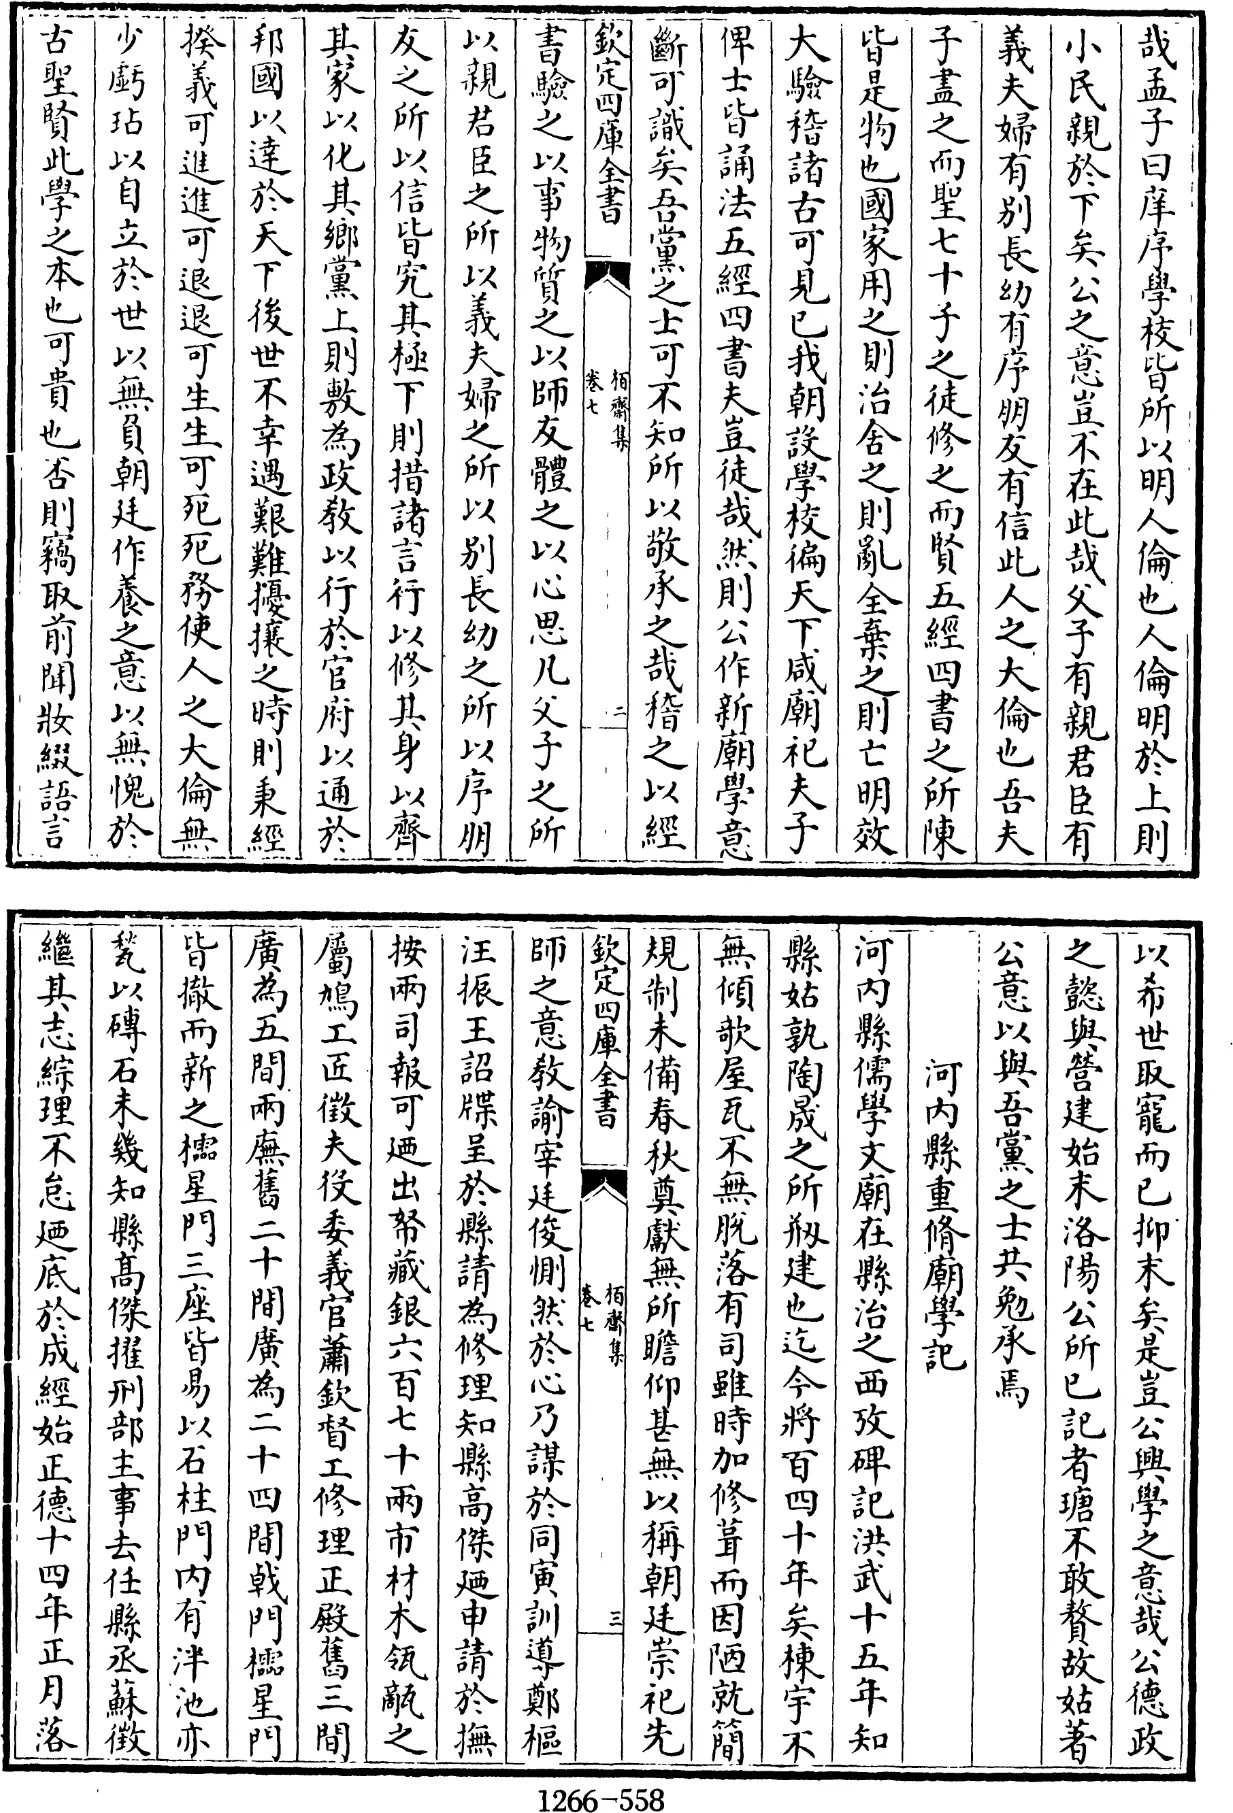 哉孟子曰庠序學校皆所以明人倫也人倫明於上則
小民親於下矣公之意豈不在此哉父子有親君臣有
義夫婦有別長幼有序朋友有信此人之大倫也吾夫
子盡之而聖七十子之徒修之而賢五經四書之所陳
皆是物也國家用之則治舍之則亂全棄之則亡明效
大驗稽諸古可見已我朝設學校徧天下咸廟祀夫子
俾士皆誦法五經四書夫豈徒哉然則公作新廟學意
斷可識矣吾黨之士可不知所以敬承之哉稽之以經
欽定四庫全書
栢齋集
卷七
二
書驗之以事物質之以師友體之以心思凡父子之所
以親君臣之所以義夫婦之所以別長幼之所以序朋
友之所以信皆究其極下則措諸言行以修其身以齊
其家以化其鄉黨上則敷為政教以行於官府以通於
邦國以達於天下後世不幸遇艱難擾攘之時則秉經
揆義可進進可退退可生生可死死務使人之大倫無
少虧玷以自立於世以無負朝廷作養之意以無愧於
古聖賢此學之本也可貴也否則竊取前聞妝綴語言
以希世取寵而已抑末矣是豈公興學之意哉公德政
之懿與營建始末洛陽公所已記者瑭不敢贅故姑著
公意以與吾黨之士共勉承焉
河內縣重脩廟學記
河內縣儒學文廟在縣治之西攷碑記洪武十五年知
縣姑孰陶晟之所剏建也迄今將百四十年矣棟宇不
無傾欹屋瓦不無脫落有司雖時加修葺而因陋就簡
規制未備春秋奠獻無所瞻仰甚無以稱朝廷崇祀先
欽定四庫全書
栢齋集
卷七
三
師之意教諭宰廷俊惻然於心乃謀於同寅訓導鄭樞
汪振王詔牒呈於縣請為修理知縣高傑廼申請於撫
按兩司報可廼出帑藏銀六百七十兩市材木瓴甋之
屬鳩工匠徵夫役委義官蕭欽督工修理正殿舊三間
廣為五間兩廡舊二十間廣為二十四間戟門櫺星門
皆撤而新之櫺星門三座皆易以石柱門內有泮池亦
甃以磚石未幾知縣高傑擢刑部主事去任縣丞蘇徵
繼其志綜理不怠廼底於成經始正德十四年正月落
1266-558